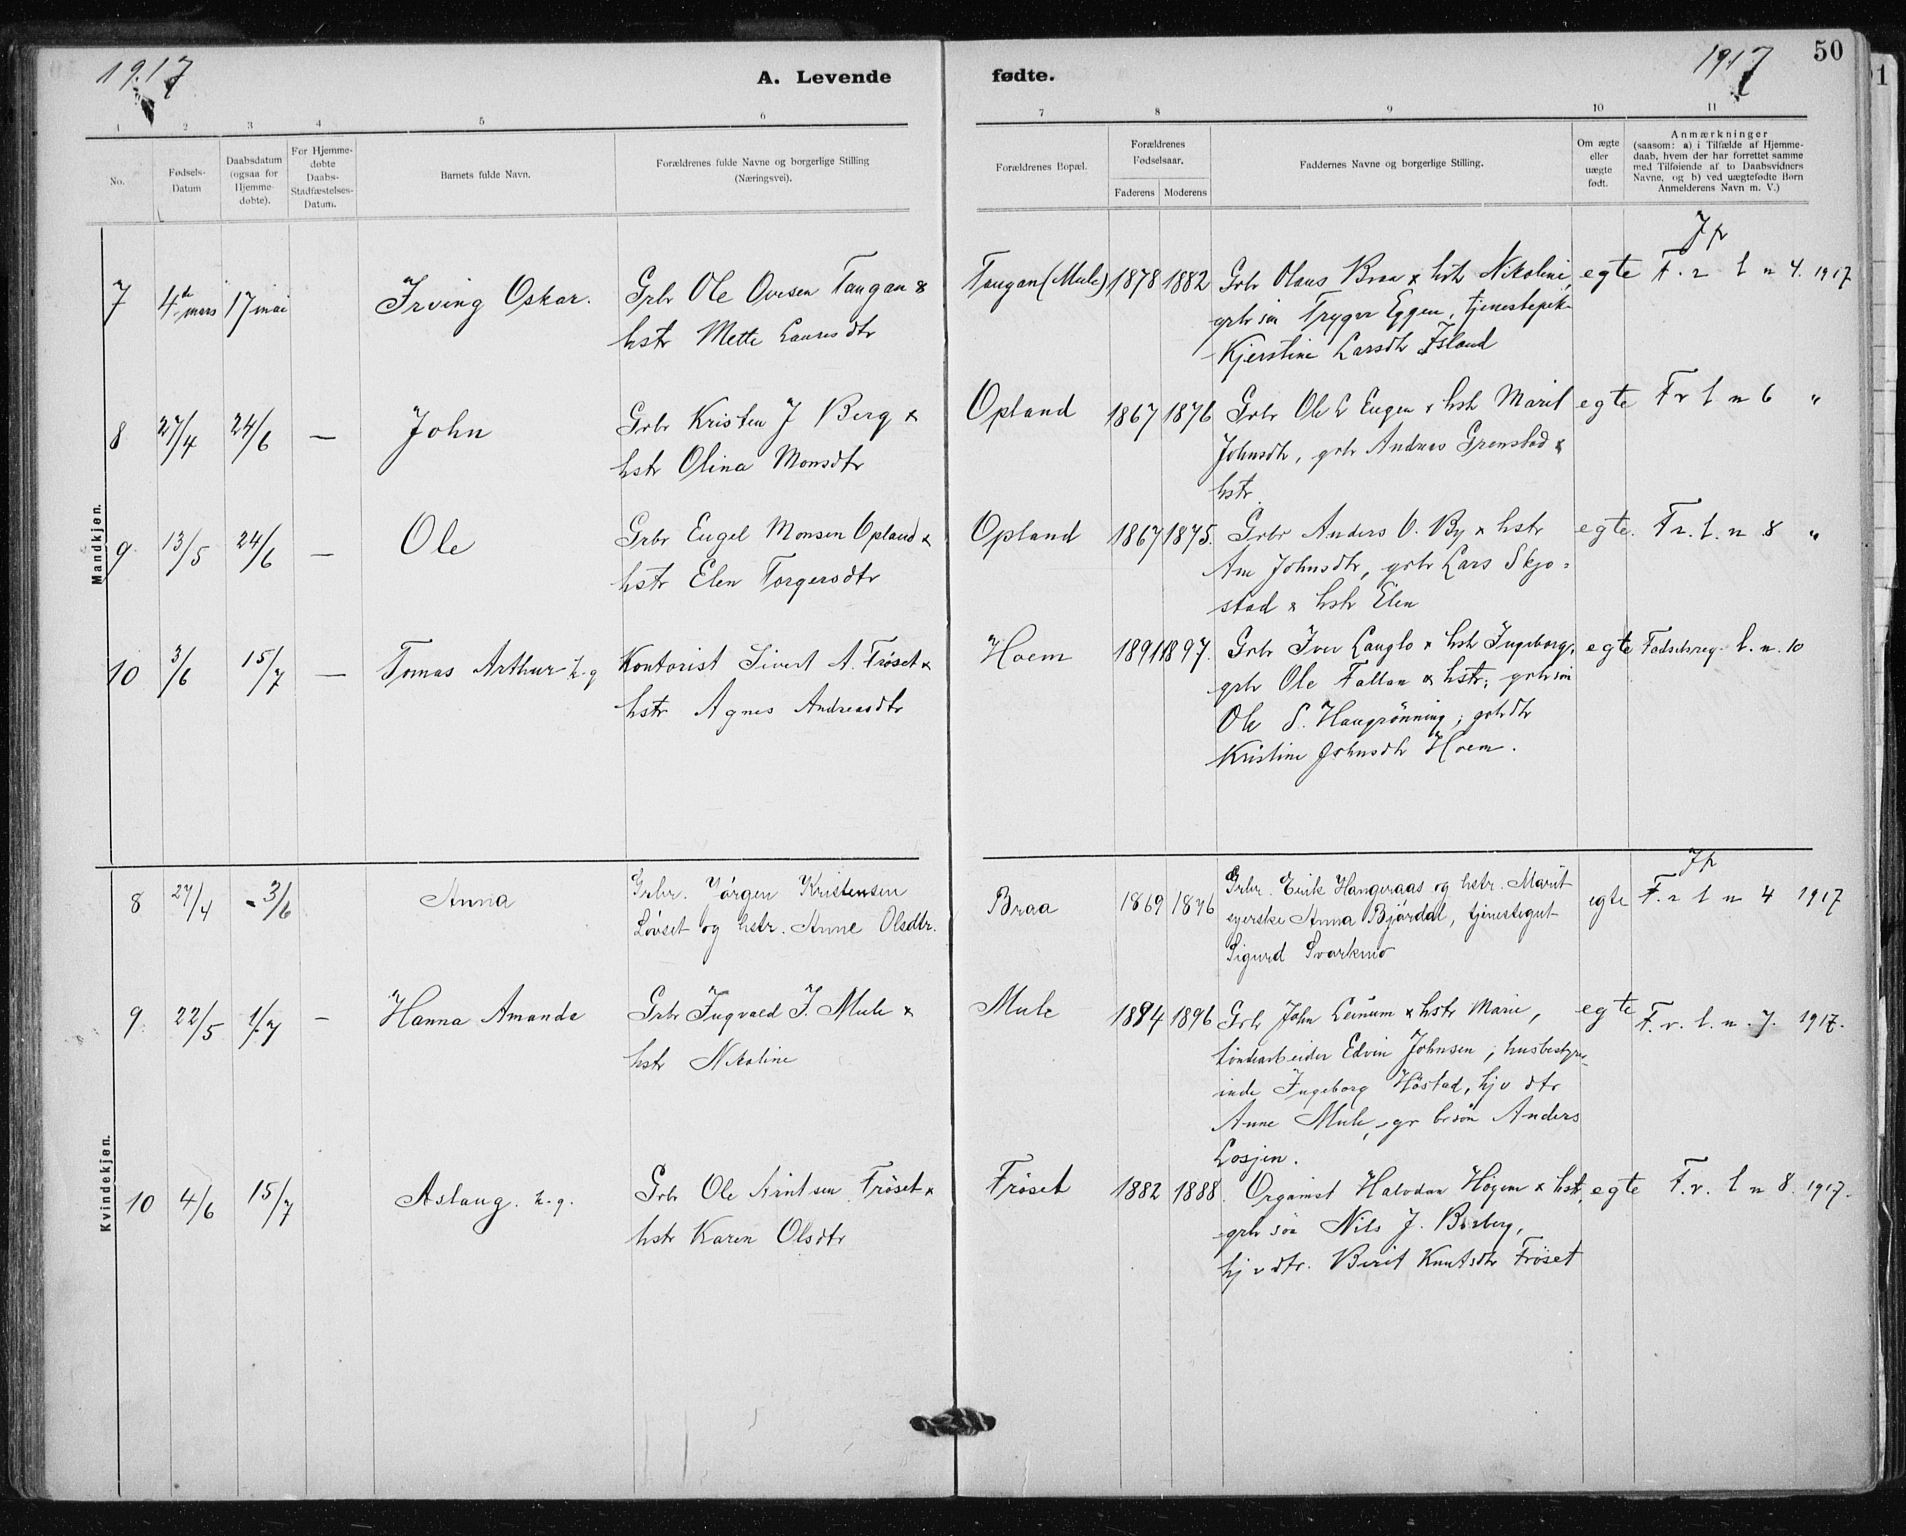 1917
A. Levende fødte.
1917
50
1 2 3 4 5 6 7 8 9 10 11
No.
Fødsels-
Datum
Daabsdatum
(ogsaa for
Hjemme-
døbte).
For Hjemme-
døbte
Daabs-
Stadfæstelses-
Datum.
Barnets fulde Navn.
Forældrenes fulde Navne og borgerlige Stilling
(Næringsvei).
Forældrenes Bopæl.
Forældrenes
Fødselsaar.
Faderens
Moderens
Faddernes Navne og borgerlige Stilling.
Om ægte
eller
uægte
født.
Anmærkninger
(saasom: a) i Tilfælde af Hjemme-
daab, hvem der har forrettet samme
med Tilføiende af to Daabsvidners
Navne, og b) ved uægtefødte Børn
Anmelderens Navn m. V.)
Mandkjøn.
7
4de mars
17 mai
Irving Oskar.
Grbr Ole Ovesen Tangan &
hstr Mette Laursdtr
Tangan (Mule)
1878
1882
Grbr Olaus Braa & hstr Nikoline,
grbr søn Trygve Eggen, tjenestepik
Kjerstine Larsdtr Island
egte
F. r l n 4. 1917
8
27/4
24/6
—
John
Grbr Kristen J Berg &
hstr Olina Monsdtr
Opland
1867
1876
Grbr Ole L Eugen & hstr Marit
Johnsdtr, grbr Andreas Grenstad &
hstr.
egte
F r l n 6 "
9
13/5
24/6
—
Ole
Grbr Engel Monsen Opland &
hstr Elen Torgersdtr
Opland
1867
1875.
Grbr Anders O. By & hstr
Ane Johnsdtr, grbr Lars Skjo-
stad & hstr Elen
egte.
Fr. l. n 8 "
10
3/6
15/7
—
Tomas Arthur h-g
Kontorist Sivert A. Frøset &
hstr Agnes Andreasdtr
Hoem
1891
1897.
Grbr Iver Langlo & hstr Ingeborg,
grbr Ole Fallan & hstr; grbr søn
Ole S. Haugrønning; grbdtr
Kristine Johnsdtr Hoem.
egte
Fødselsreg. l. n. 10
Kvindekjøn.
8
27/4
3/6
Anna
Grbr. Jörgen Kristensen
Lövset og hstr. Anne Olsdtr.
Braa
1869
1876
Grbr. Erik Hangeraas og hstr. Marit
syerske Anna Björdal, tjenestegut
Sigurd Svarkmo
egte
F. r l n 4 1917
9
22/5
1/7
—
Hanna Amanda
Grbr Ingvald J. Mule &
hstr Nikoline
Mule
1884
1896
Grbr John Leinum & hstr Marie,
töndearbeider Edvin Johnsen; husbestyr-
inde Ingeborg Höstad, hj v dtr
Anne Mule, gr br søn Anders
Losjen.
egte
F. r. l. n. 7. 1917.
10
4/6
15/7
Aslaug. h.g.
Grbr Ole Knutsen Fröset &
hstr Karen Olsdtr
Fröset
1882
1888.
Organist Halvdan Högem & hstr,
grbr søn Nils J. Borberg,
hj v dtr. Berit Knutsdtr Fröset
egte
F. r. l n 8. 1917.